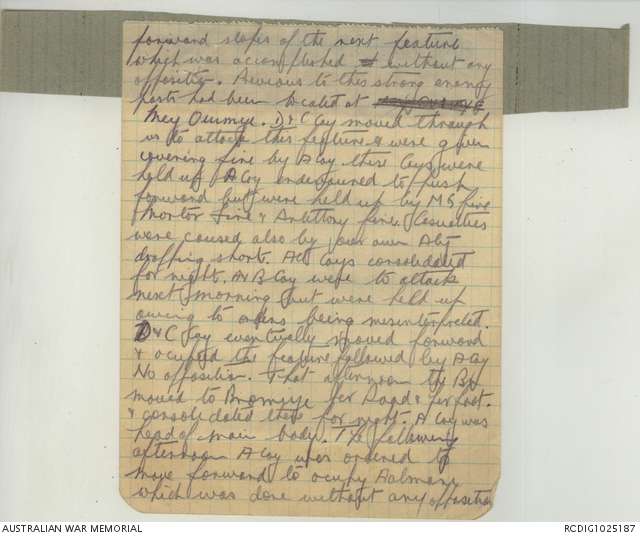 forward slopes of the next feature
which was accomplished without any
opposition. Previous to this strong enemy
posts had been located at
D & C Coy moved through
us to attack this feature & were given
covering fire by A Coy these Coys were
held up. A Coy endeavoured to push
forward but were held up by MG fire
Mortar fire & Artillery fire. Casualties
were caused also by our own Arty
dropping short. All Coys consolidated
for night. A & B Coy were to attack
next morning but were held up
owing to orders being misinterpreted.
D & C Coy eventually moved forward
& ocupied the feature followed by A Coy
No opposition. That afternoon the Bn
moved to per Road & per foot.
& consolidated there for night. A Coy was
head of main body. The following
afternoon A Coy was ordered to
move forward to ocupy
which was done without any opposition
AUSTRALIAN WAR MEMORIAL
RCDIG1025187